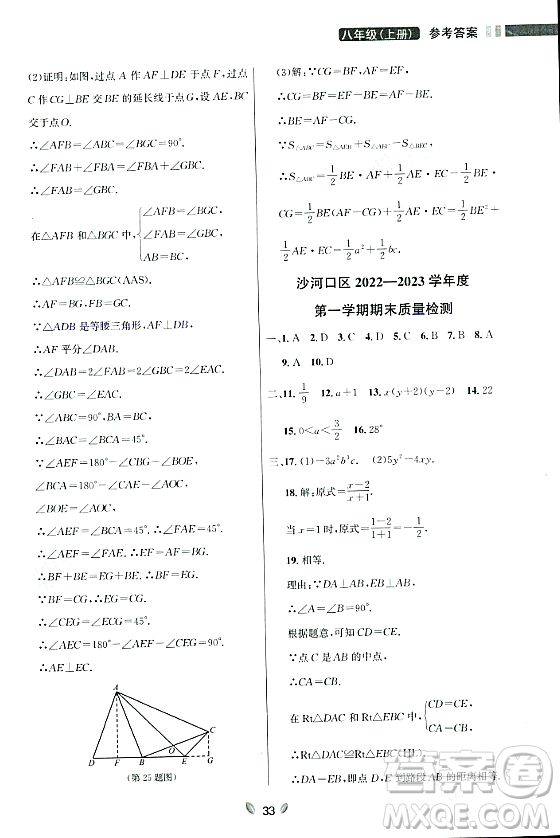 八年级(上册) 参考答案
(2)证明:如图,过点 A 作 AF⊥DE 于点 F,过点
C 作 CG⊥BE 交 BE 的延长线于点 G,设 AE,BC
交于点O.
∴∠AFB=∠ABC=∠BGC=90°.
∴∠FAB+∠FBA=∠FBA+∠GBC.
∴∠FAB=∠GBC.
在△AFB 和△BGC 中, { ∠FAB=∠GBC, ∠AFB=∠BGC, AB=BC,
∴△AFB≌△BGC(AAS).
∴AF=BG,BF=CG.
∵△ADB 是等腰三角形,AF⊥DB,
∴AF 平分∠DAB.
∴∠DAB=2∠FAB=2∠GBC.
∵∠DAB=2∠EAC,
∴∠GBC=∠EAC.
∵∠ABC=90°,AB=BC,
∴∠BAC=∠BCA=45°.
∵∠AEF=180°-∠GBC-∠BOE,
∠BCA=180°-∠EAC-∠AOC,∠AOC=
∠BOE,
∴∠AEF=∠BCA=45°.
∴∠FAE=∠AEF=45°.
∴AF=EF=BG.
∴BF+BE=BE+EG.
∴BF=EG=CG.
∴∠CEG=∠ECG=45°.
∴∠AEC=180°-∠AEF-∠CEG=90°.
∴AE⊥EC.
A
D F B E G
C
(第 25 题图)
(3)解:∵CG=BF=EG,
∴BE=BG-EG.
∴BE=AF-CG.
∴AF=BE+CG.
∵S△ABC=S△ABE+S△AEC-S△BEC,
∴S△ABC=1/2BE·AF+1/2AE·EC-1/2BE·
CG=1/2BE(AF-CG)+1/2AE·EC=1/2BE²+
1/2AE·EC=1/2a²+1/2bc.
沙河口区 2022—2023 学年度
第一学期期末质量检测
一、1. A 2. D 3. C 4. D 5. C 6. B 7. B 8. B
9. A 10. D
二、11. 1/9 12. a+1 13. x(y+2)(y-2) 14. 22
15. 0<a<3/2 16. 28°
三、17. (1)-3a²b³c. (2)5y²-4xy.
18. 解:原式=x-2/x+1.
当 x=1 时,原式=1-2/1+1=-1/2.
19. 相等.
理由:∵DA⊥AB,EB⊥AB,
∴∠A=∠B=90°.
根据题意,可知 CD=CE.
∵点 C 是 AB 的中点,
∴CA=CB.
在 Rt△DAC 和 Rt△EBC 中, { CD=CE, CA=CB,
∴Rt△DAC≌Rt△EBC(HL).
∴DA=EB,即点 D,E 到路段 AB 的距离相等.
33
作业精灵